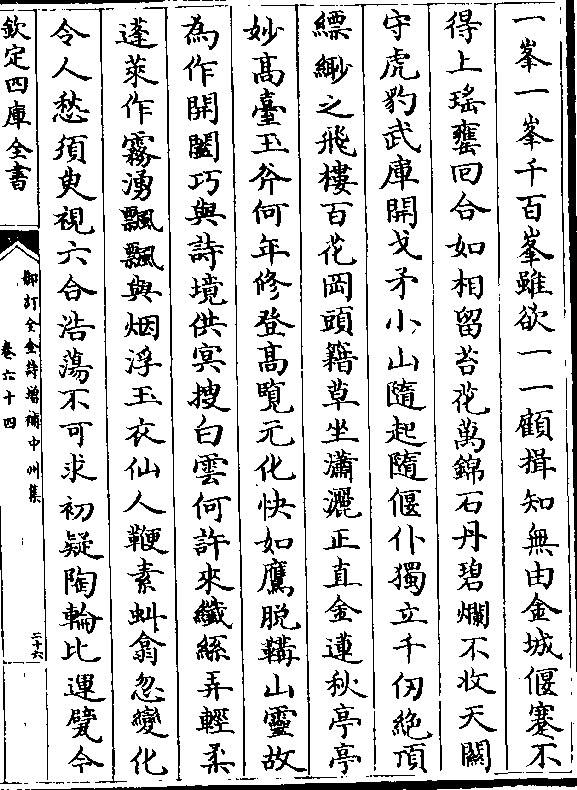 一峯一峯千百峯雖欲一一顧揖知無由金城偃蹇不
得上瑤甕回合如相留苔花萬錦石丹碧爛不收天關
守虎豹武庫開戈矛小山隨起隨偃仆獨立千仞絶頂
縹緲之飛樓百花岡頭籍草坐瀟灑正直金蓮秋亭亭
妙髙臺玉斧何年修登髙覽元化快如鷹脱鞲山靈故
為作開闔巧與詩境供冥搜白雲何許來纖絲弄輕柔
蓬萊作霧湧飄飄與烟浮玉衣仙人鞭素虯翕忽變化
令人愁須臾視六合浩蕩不可求初疑陶輪比運甓今
欽定四庫全書
御訂全金詩增補中州集
卷六十四
二十六